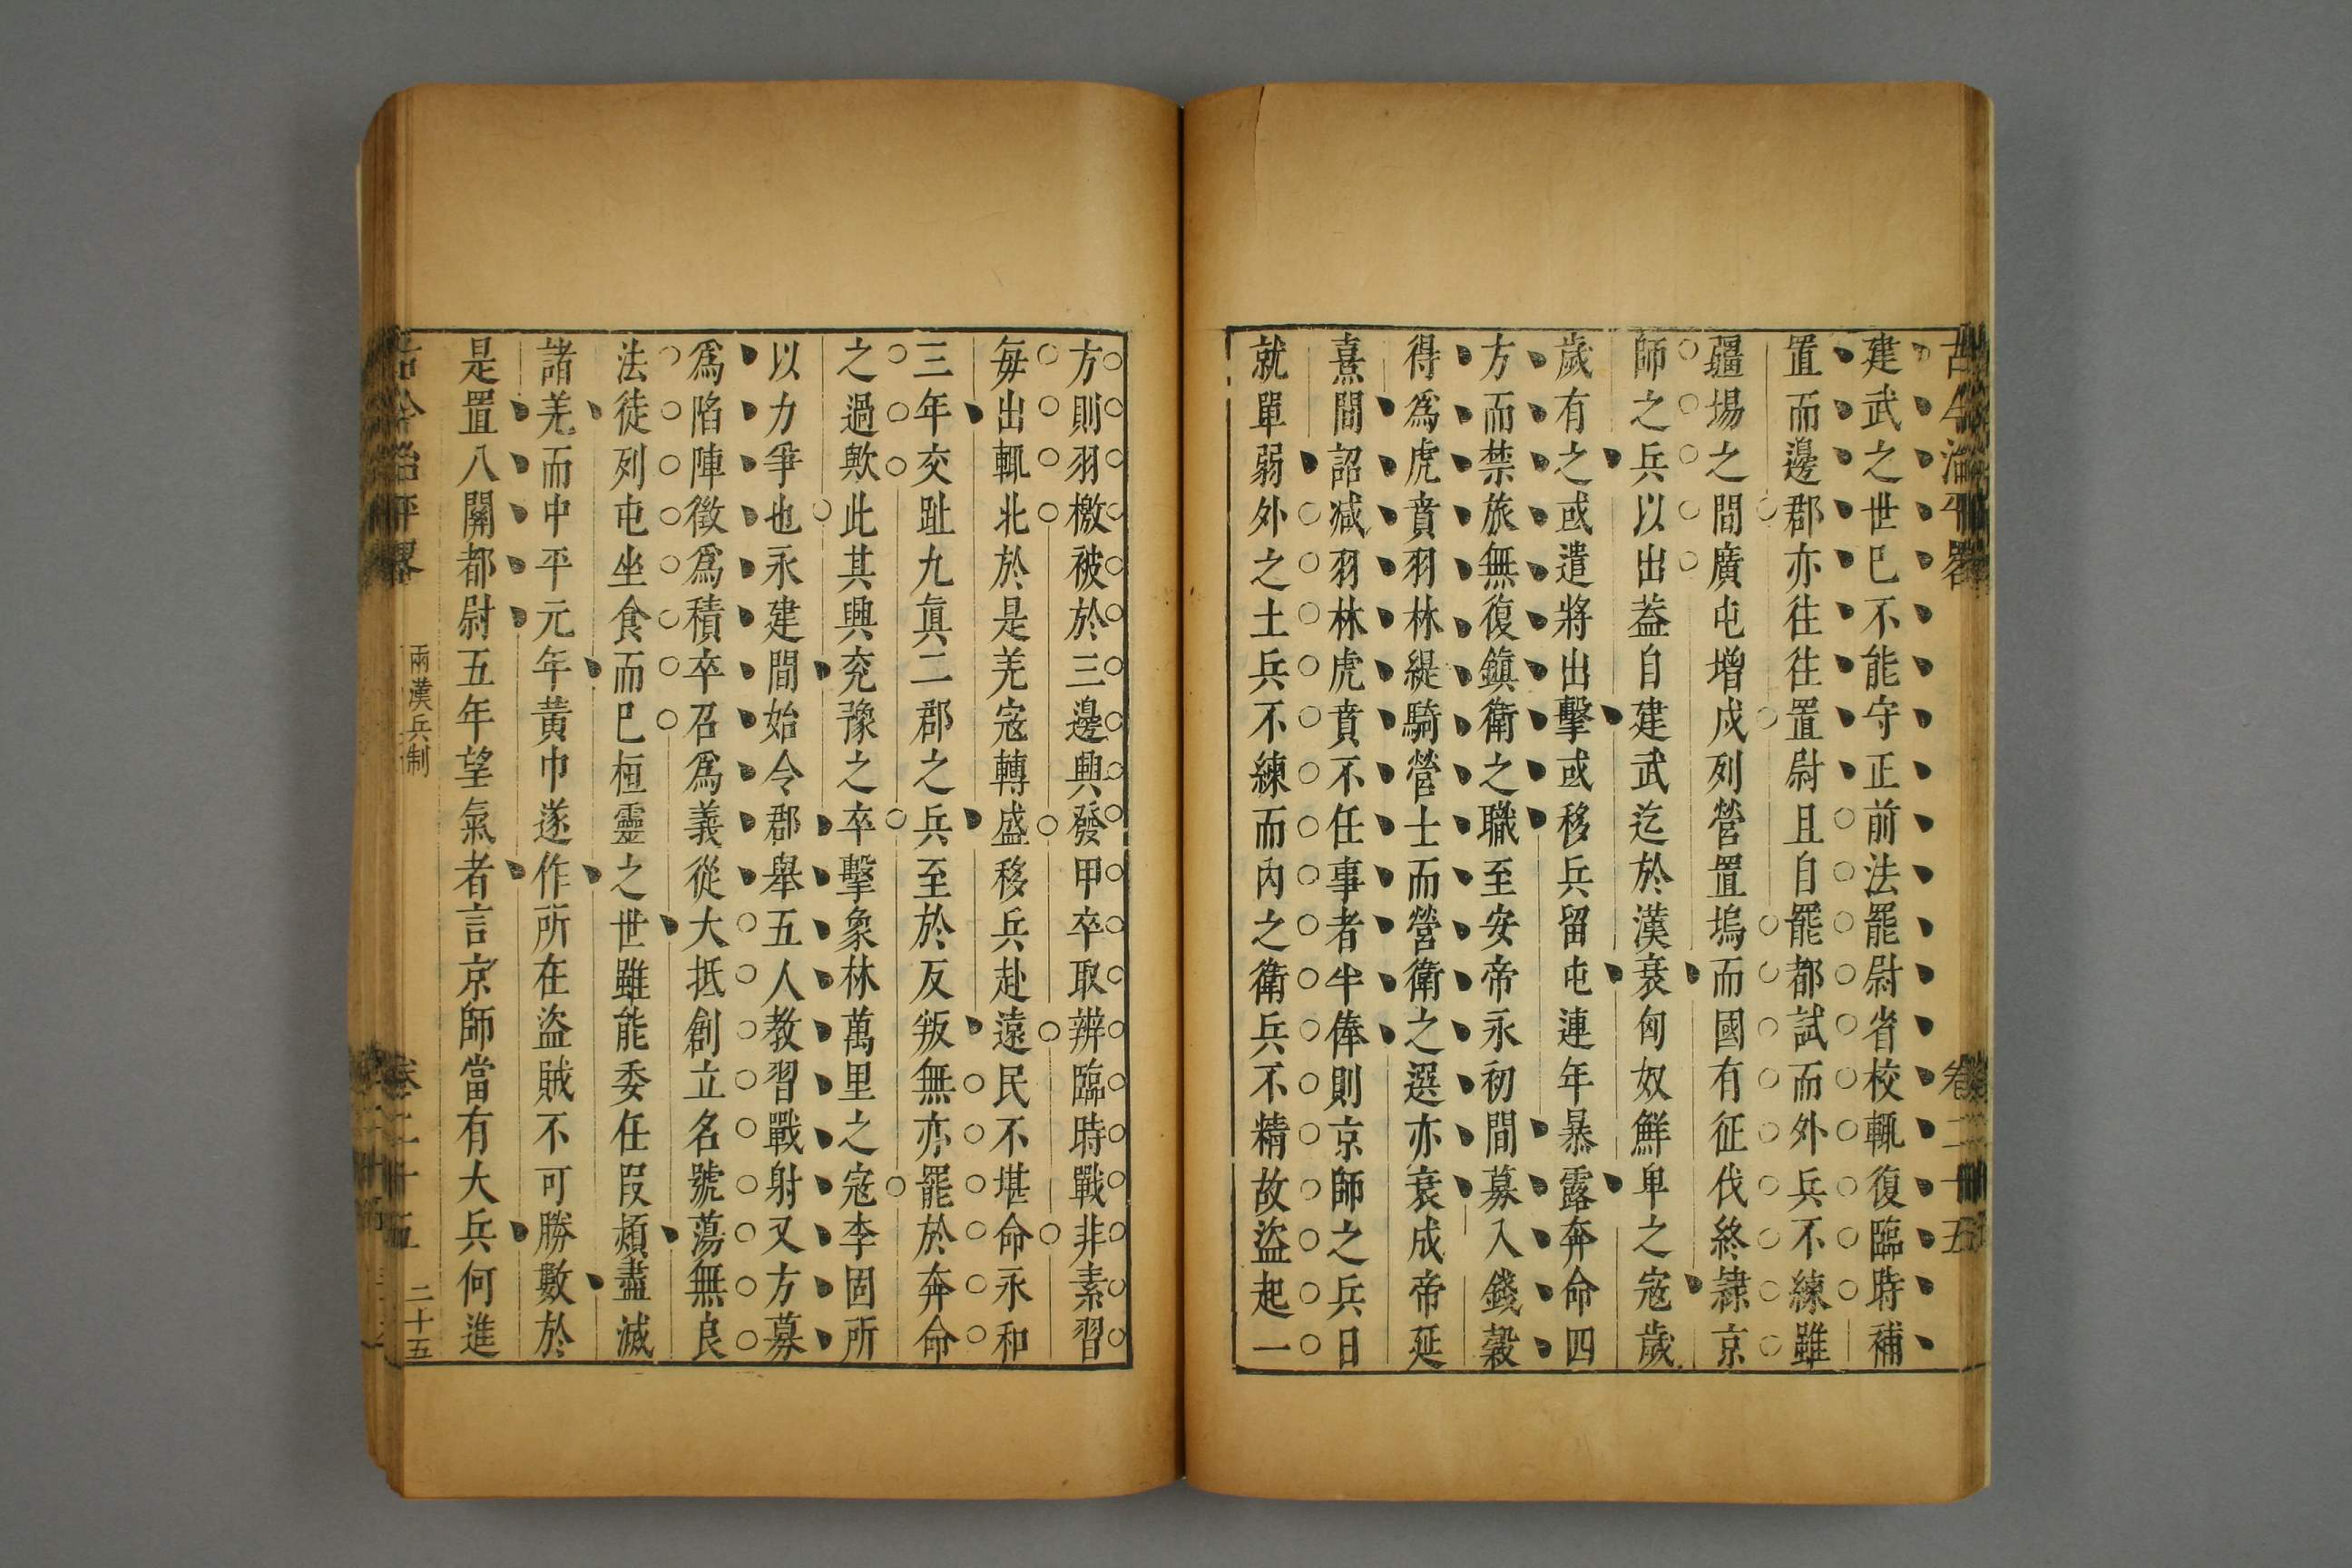 建武之世已不能守正前法罷尉省校輒復臨時補
置而邊郡亦往往置尉且自罷都試而外兵不練雖
疆場之間廣屯增戍列營置塢而國有征伐終隷京
師之兵以出葢自建武迄於漢衰匈奴鮮卑之寇歲
歲有之或遣將出擊或移兵留屯連年暴露奔命四
方而禁旅無復鎭衛之職至安帝永初間募入錢穀
得爲虎賁羽林緹騎營士而營衛之選亦衰成帝延
熹間詔减羽林虎賁不任事者半俸則京師之兵日
就單弱外之土兵不練而內之衛兵不精故盜起一
方則羽檄被於三邊興發甲卒取辨臨時戰非素習
每出輒北於是羌寇轉盛移兵赴遠民不堪命永和
三年交趾九眞二郡之兵至於反叛無亦罷於奔命
之過歟此其興兖豫之卒擊象林萬里之寇李固所
以力爭也永建間始令郡舉五人教習戰射又方募
爲陷陣徵爲積卒召爲義從大抵創立名號蕩無良
法徒列屯坐食而已桓靈之世雖能委任段熲盡滅
諸羌而中平元年黃巾遂作所在盜賊不可勝數於
是置八關都尉五年望氣者言京師當有大兵何進
兩漢兵制
卷二十五
二十五